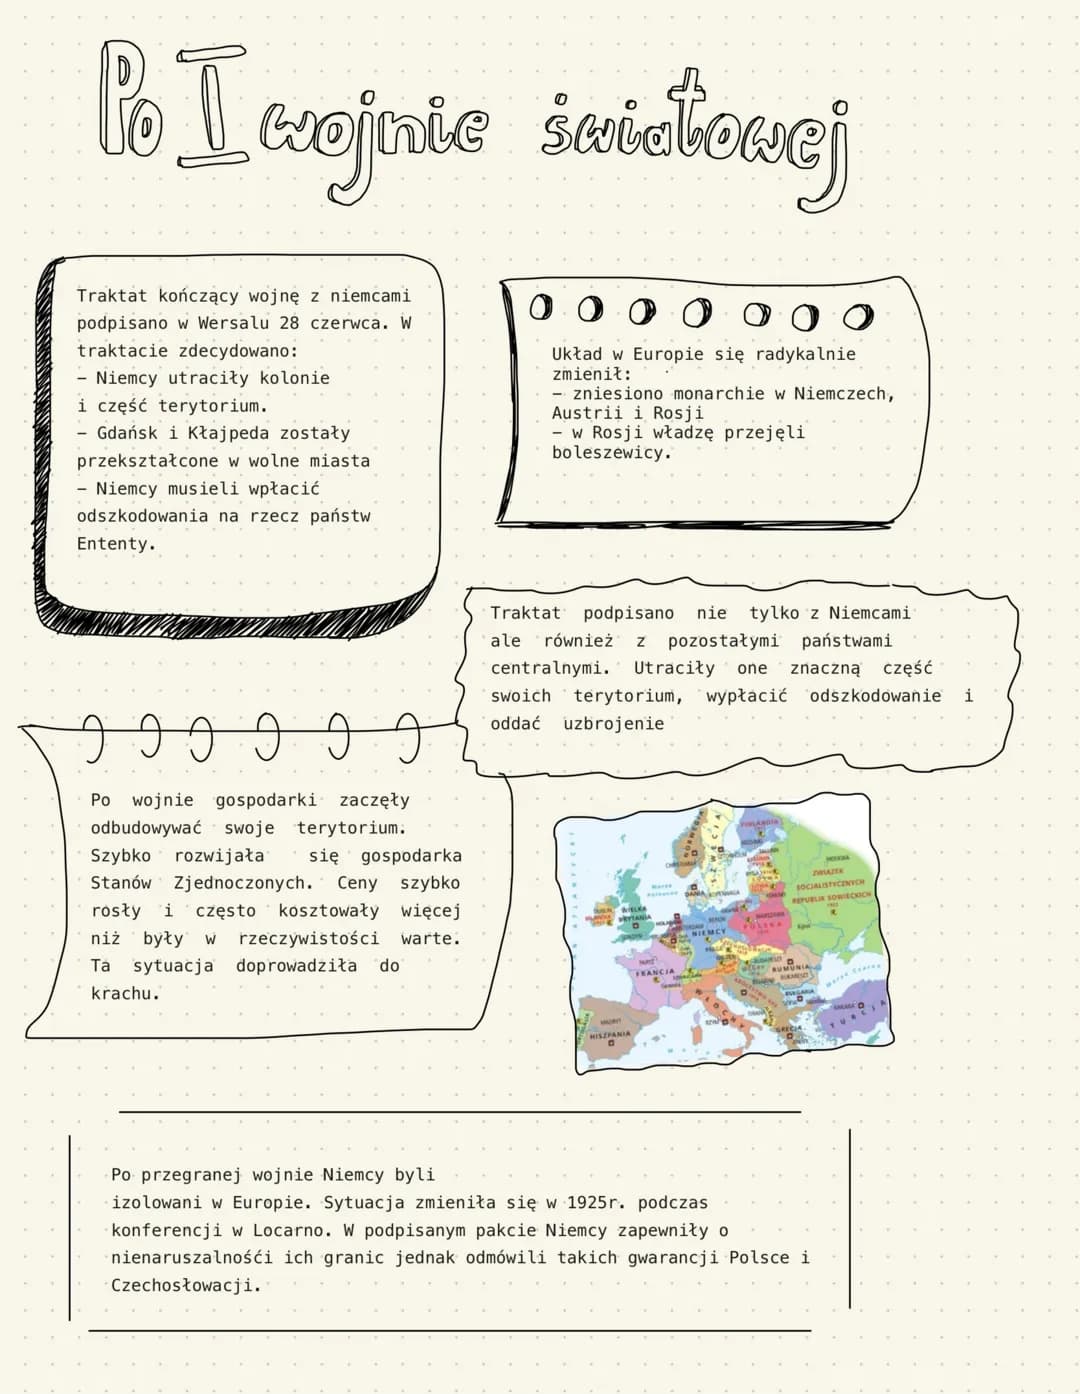 Po I wojnie światowej
Traktat kończący wojnę z niemcami
podpisano w Wersalu 28 czerwca. W
traktacie zdecydowano:
– Niemcy utraciły kolonie
i część terytorium.
– Gdańsk i Kłajpeda zostały
przekształcone w wolne miasta
– Niemcy musieli wpłacić
odszkodowania na rzecz państw
Ententy.
Układ w Europie się radykalnie
zmienił:
– zniesiono monarchie w Niemczech,
Austrii i Rosji
– w Rosji władzę przejęli
boleszewicy.
Traktat podpisano nie tylko z Niemcami
ale również z pozostałymi państwami
centralnymi. Utraciły one znaczną część
swoich terytorium, wypłacić odszkodowanie i
oddać uzbrojenie
Po wojnie gospodarki zaczęły
odbudowywać swoje terytorium.
Szybko rozwijała się gospodarka
Stanów Zjednoczonych. Ceny szybko
rosły i często kosztowały więcej
niż były w rzeczywistości warte.
Ta sytuacja doprowadziła do
krachu.
NORWEGIA
SZWECJA
FINLANDIA
MOSKWA
ZWIĄZEK
SOCJALISTYCZNYCH
REPUBLIK SOWIECKICH
1922
Morze
Północne
DANIA
KOPENHAGA
WIELKA
BRYTANIA
DUBLIN
BERLIN
NIEMCY
WARSZAWA
POLSKA
Kijów
PARYŻ
FRANCJA
Genewa
BUDAPESZT
RUMUNIA
BUKARESZT
Morze Czarne
BUŁGARIA
WŁOCHY
RZYM
ANKARA
TURCJA
GRECJA
MADRYT
HISZPANIA
Po przegranej wojnie Niemcy byli
izolowani w Europie. Sytuacja zmieniła się w 1925r. podczas
konferencji w Locarno. W podpisanym pakcie Niemcy zapewniły o
nienaruszalnośći ich granic jednak odmówili takich gwarancji Polsce i
Czechosłowacji.